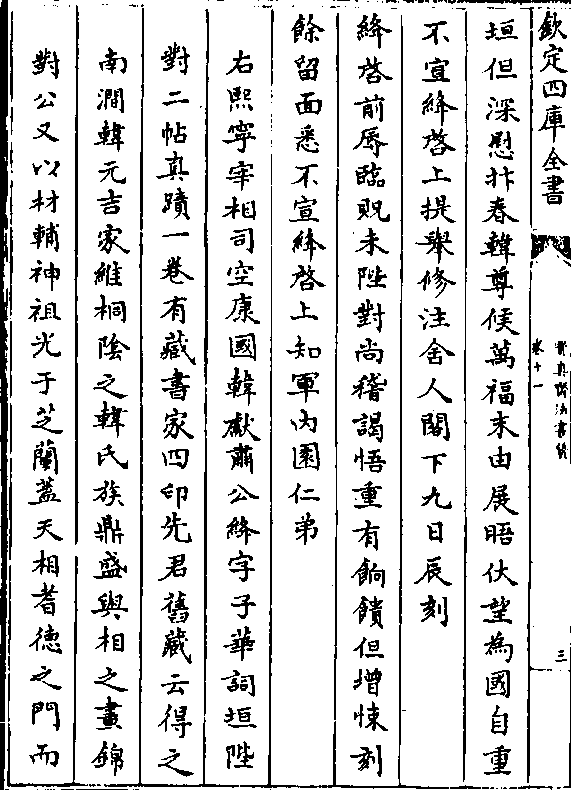 欽定四庫全書
寶真齋法書贊
卷十一
三
垣但深慰抃春韓尊候萬福末由展晤伏望為國自重
不宣絳啓上提舉修注舍人閣下九日辰刻
絳啓前辱臨貺未陛對尚稽謁悟重有餉饋但增悚刻
餘留面悉不宣絳啓上知軍内園仁弟
右熙寧宰相司空康國韓獻肅公絳字子華詞垣陛
對二帖真蹟一卷有藏書家四印先君舊藏云得之
南澗韓元吉家維桐陰之韓氏族鼎盛與相之晝錦
對公又以材輔神祖光于芝蘭蓋天相耆德之門而